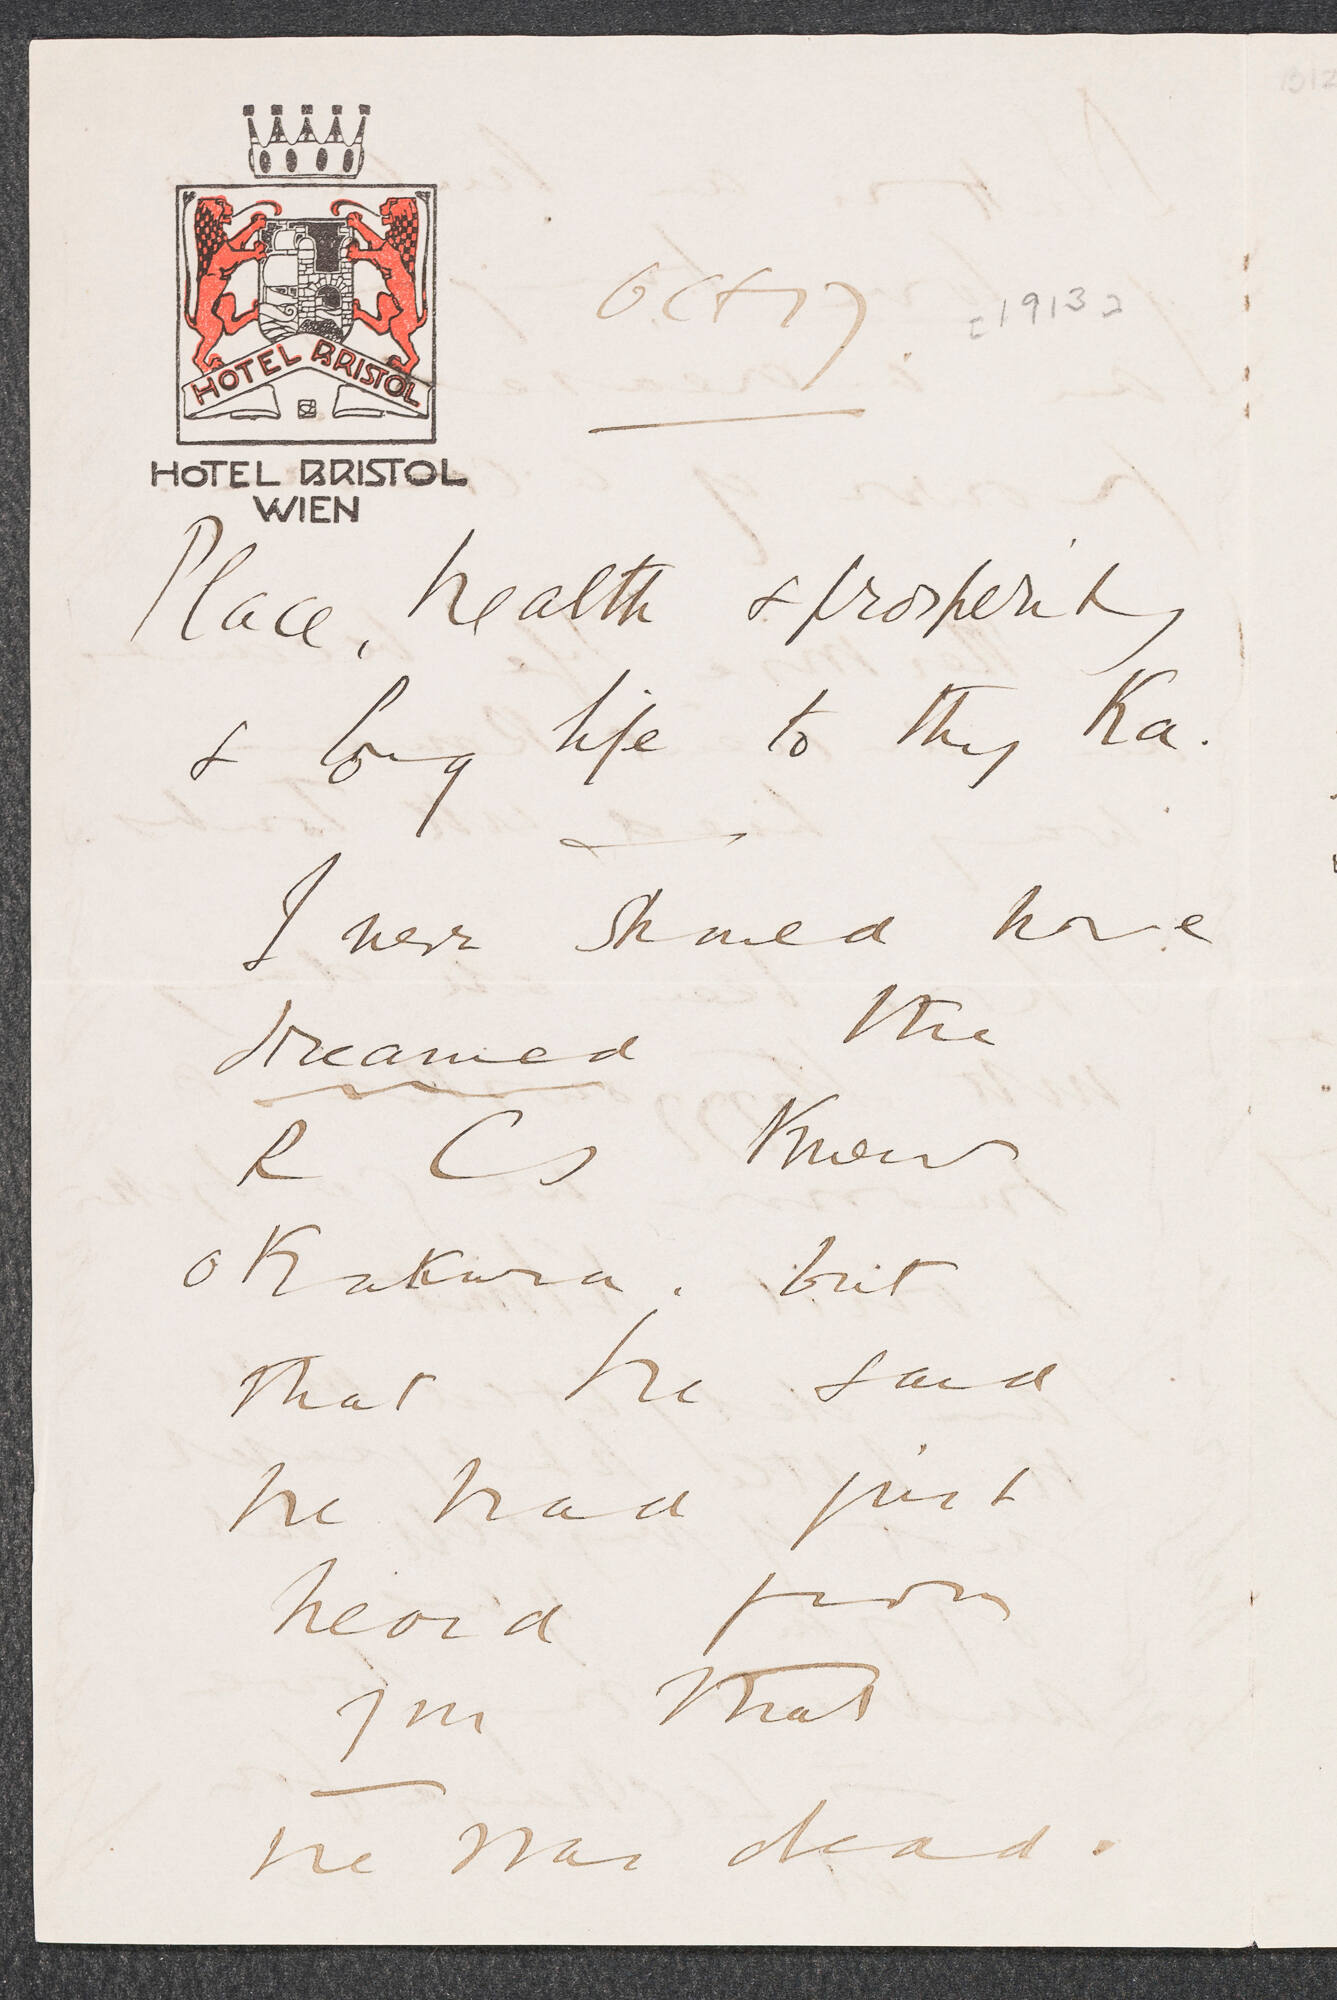 HOTEL BRISTOL
HOTEL BRISTOL
WIEN
Oct 17
[1913]
Peace, health & prosperity
& long life to thy Ka.
I never should have
dreamed the
R Cs knew
Okakura. but
that he said
he had just
heard from
you that
he was dead.